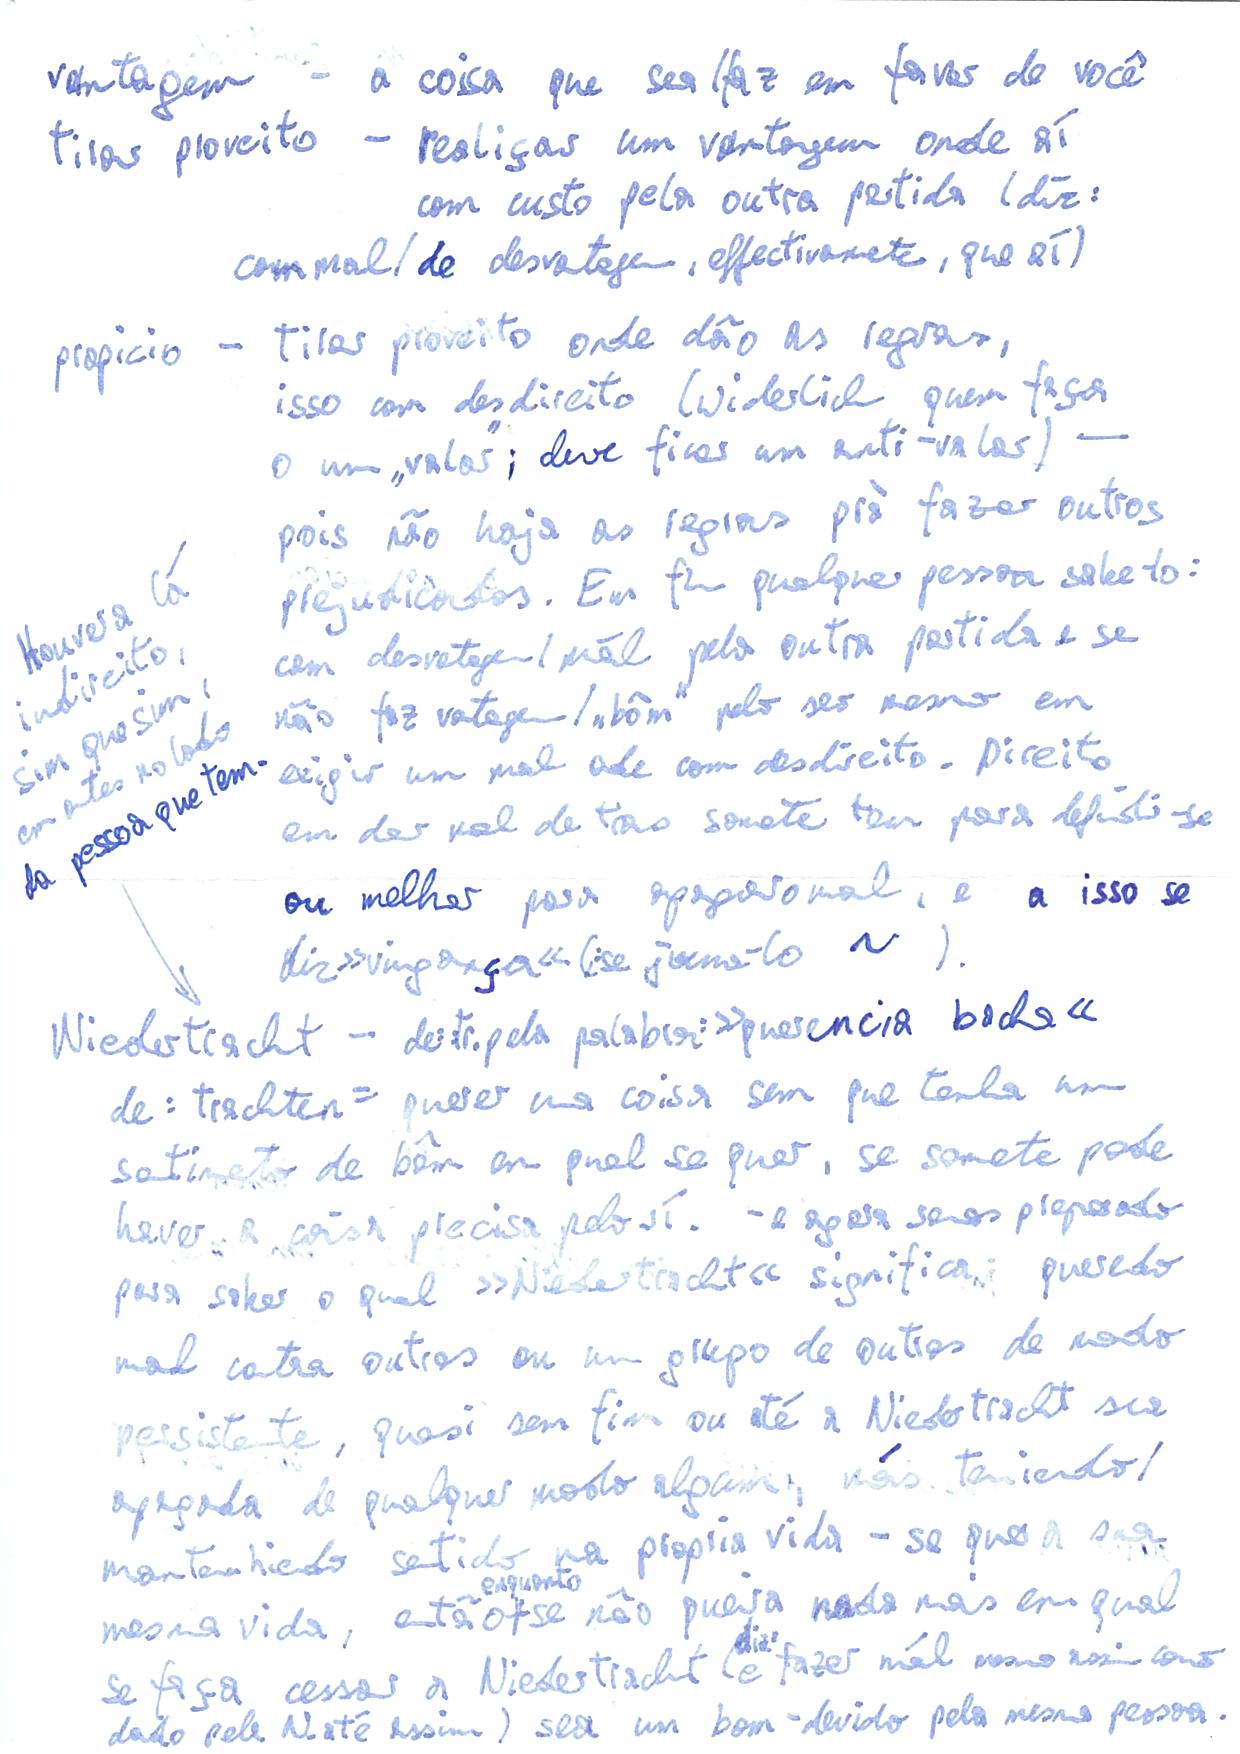 vantagem - a coisa que sea/faz em favor de você
tirar proveito - realiçar um vantagem onde aí
com custo pela outra partida (diz:
com mal/de desvatagem, effectivamete, que aí)
propicio - tirar proveito onde dão as regras,
isso com desdireito (widerlich quem faça
o um „valor"; deve ficar um anti-valor) —
pois não haja as regras prà fazer outros
prejudicados. Em fim qualquer pessoa sabe to:
com desvatagem/mál pela outra partida e se
não faz vatagem/„bôm" pelo ser mesmo em
exigir um mal ode com desdireito. Direito
em dar mal de tras somete tem para defidir-se
ou melhor para apagar o mal, e a isso se
diz »vingança« (:se -lo ~ ).
Houvera lá
indireito,
sim que sim,
em antes no lado
da pessoa que tem-
Niedertracht - de:tr. pela palabra: »querencia bacha«
de: trachten = querer uma coisa sem que tenha um
satimeto de bôm em qual se quer, se somete pode
haver a coisa precisa pelo sí. - e agora semos preparado
para saber o qual »Niedertracht« significa: queredo
mal cotra outros ou um grupo de outros de modo
persistente, quasi sem fim ou até a Niedertracht sea
apagada de qualquer modo algum, más teniendo/
mantenhiedo setido na propria vida - se quer a sua
mesma vida, entã enquanto se não queira nada mas em qual
se faça cessar a Niedertracht (e diz' fazer mál mesmo assim como
dado pela N até assim) sea um bom-devido pela mesma pessoa.